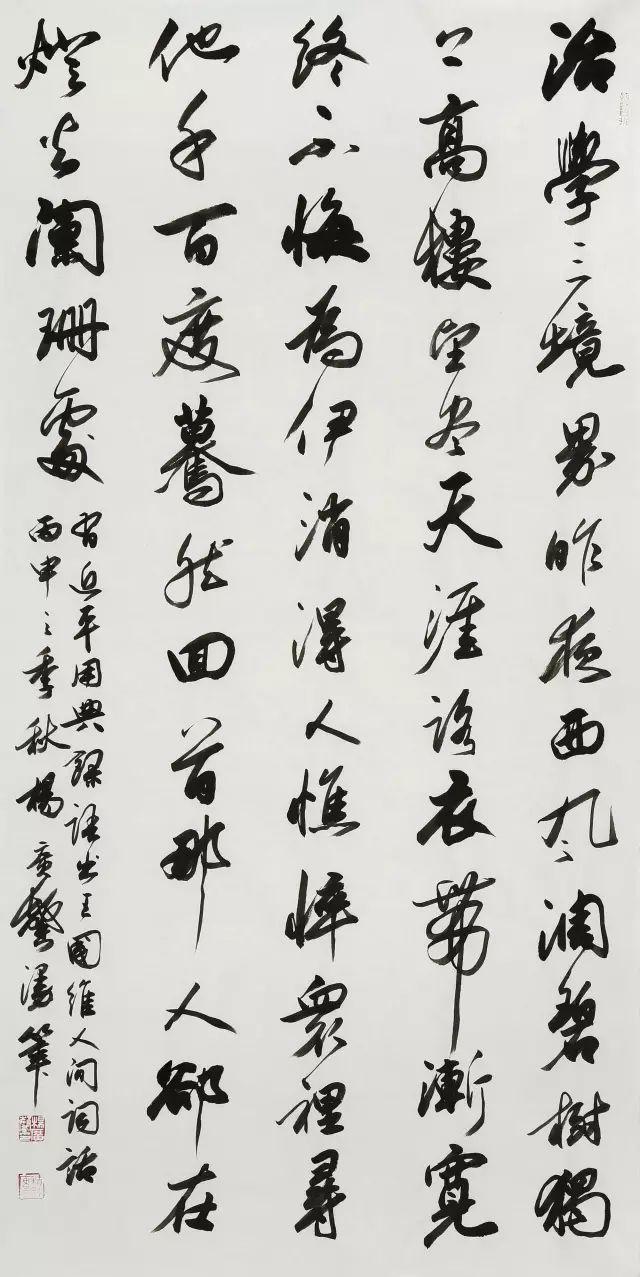 治學三境界昨夜西風凋碧樹獨
上高樓望尽天涯路衣帶漸寬
終不悔為伊消得人憔悴眾裡尋
他千百度驀然回首那人卻在
燈火闌珊處
習近平用典錄語出王國維人間詞話
丙申之季秋楊廣馨漫筆